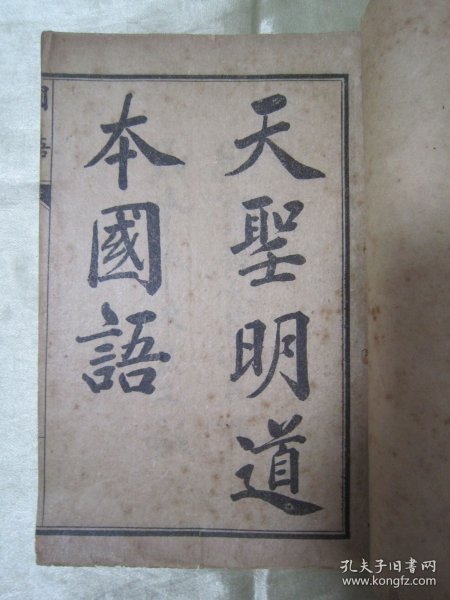 天聖明道
本國語
國語
孔夫子旧书网
www.kongfz.com